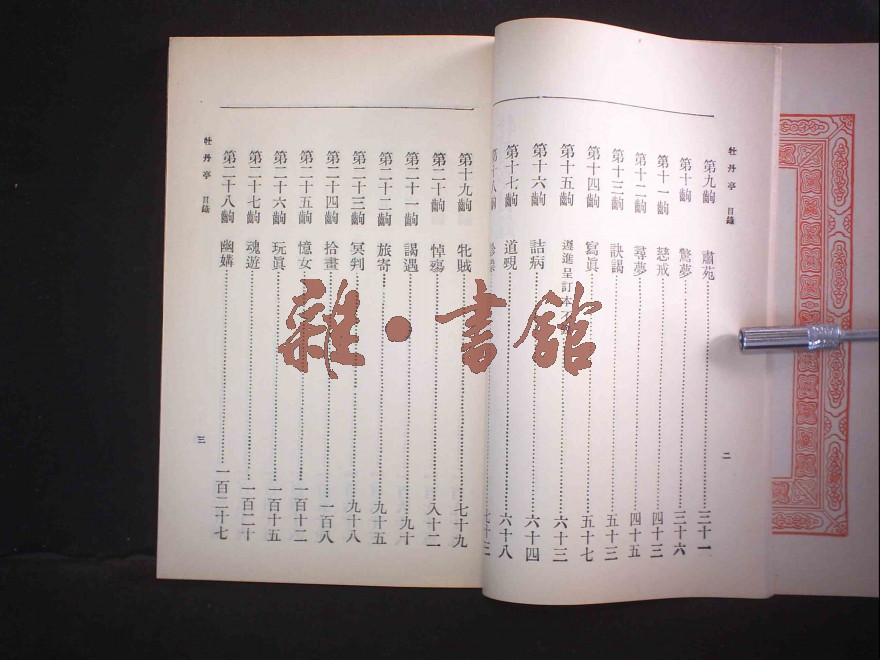 牡丹亭 目錄 二
第九齣 肅苑 三十一
第十齣 驚夢 三十六
第十一齣 慈戒 四十三
第十二齣 尋夢 四十五
第十三齣 訣謁 五十三
第十四齣 寫眞 五十七
第十五齣 遲進呈訂本 六十三
第十六齣 詰病 六十四
第十七齣 道覡 六十八
第十八齣 七十三
第十九齣 牝賊 七十九
第二十齣 悼殤 八十二
第二十一齣 謁遇 九十
第二十二齣 旅寄 九十五
第二十三齣 冥判 九十八
第二十四齣 拾畫 一百八
第二十五齣 憶女 一百十二
第二十六齣 玩眞 一百十五
第二十七齣 魂遊 一百二十
第二十八齣 幽媾 一百二十七
牡丹亭 目錄 三
雜·書館